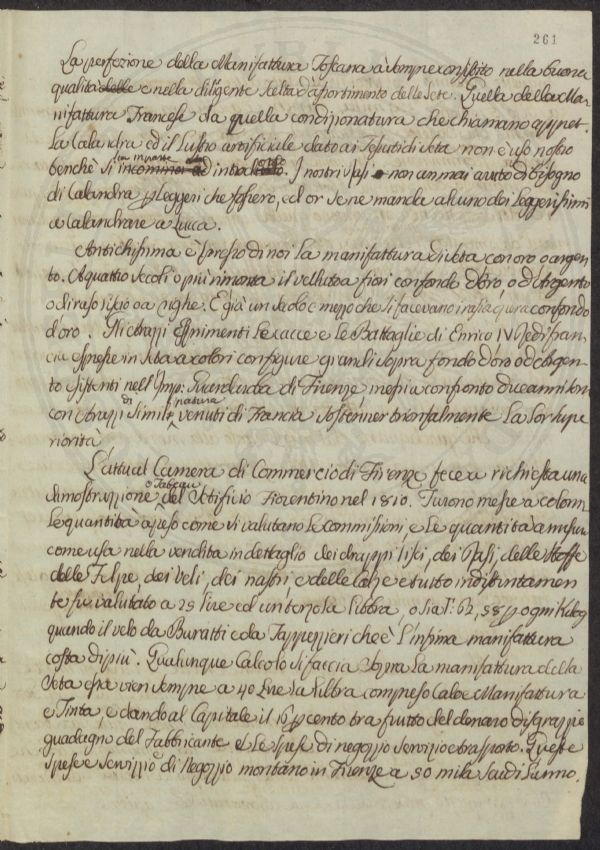 261
La perfezione della Manifattura Toscana à sempre consistito nella buona
qualità delle e nella diligente scelta d'assortimento delle Sete. Quella della Ma-
nifattura Francese da quella condizionatura che chiamano appret.
La Calandra ed il Lustro artificiale dato ai Tessuti di Seta non è uso nostro
benchè si ad intro I nostri rasi non an mai avuto di bisogno
di Calandra p leggeri che fossero, ed or se ne manda alcuno dei leggerissimi
a Calandrare a Lucca.
Antichissima è presso di noi la manifattura di seta con oro o argen
to. A quattro secoli o più rimonta il velluto a fiori con fondo d'oro, o d'Argento
o di raso riccio o a righe. E già un secolo e mezzo che si facevano con fondo
d'oro. Gli Arazzi esprimenti Le cacce e Le Battaglie di Enrico IV Re di fran-
cia espresse in seta a colori con figure grandi sopra fondo d'oro o d'Argen-
to esistenti nell' Imp: Guardaroba di Firenze, messi a confronto due anni son
con Arazzi di simil natura venuti di Francia sostenner trionfalmente La lor supe
riorità
L'attual Camera di Commercio di Firenze fece a richiesta una
dimostrazione o Tableau del Setificio Fiorentino nel 1810. Furono messe a colonn
Le quantità a peso come si valutano Le commissioni, e Le quantità a misura
come usa nella vendita in dettaglio dei drappi lisci, dei Rasi, delle stoffe
delle Felpe, dei veli, dei nastri, e delle Calze e tutto indistintamen
te fu valutato a 29 lire ed un terzo la libbra, o sia f: 62, 58 p ogni Kilog
quando il velo da Buratti e da Tappezzieri che è L'infima manifattura
costa di più. Qualunque Calcolo si faccia sopra La manifattura della
Seta essa vien sempre a 40 Lire la Libbra compreso Calo e Manifattura
e Tinta, e dando al Capitale il 16 p cento tra frutto del denaro disgrazie
guadagno del Fabbricante e Le spese di negozio servizio e trasporto. Queste
spese e servizio di Negozio montano in Firenze a 90 mila Scudi l'anno.